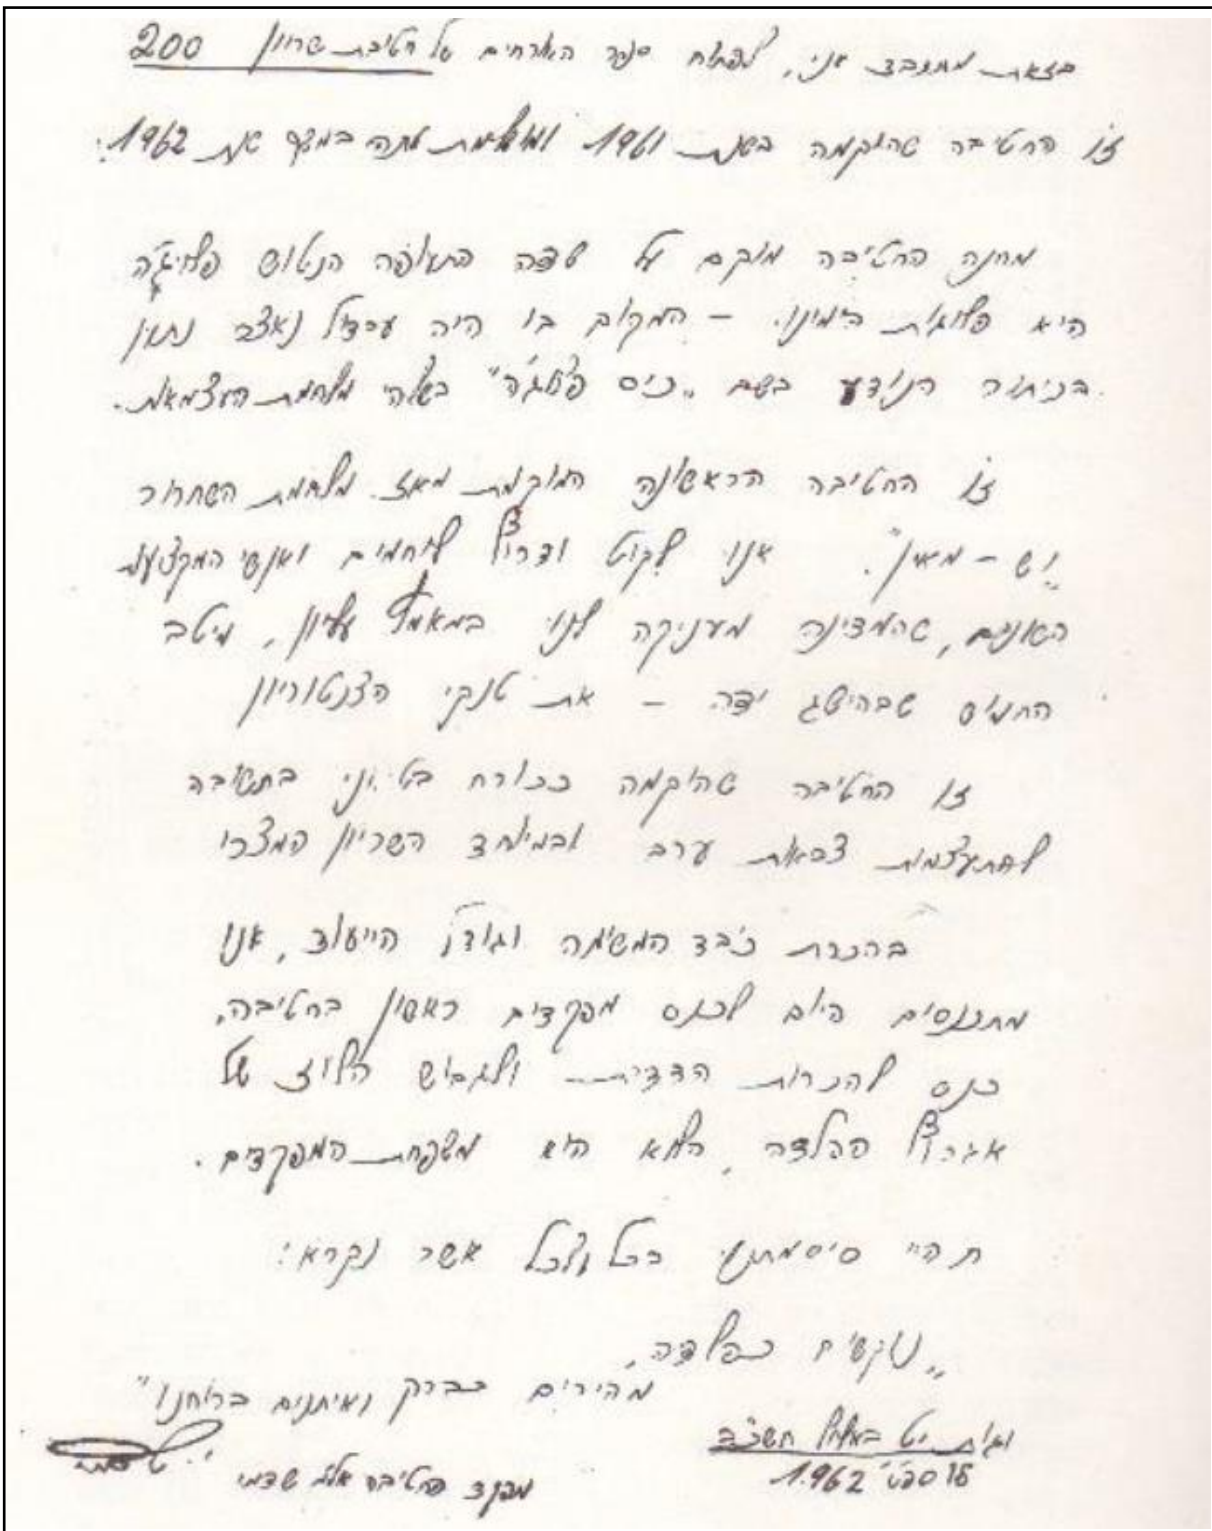 בזאת מתכבד אני, לפתוח ספר האורחים של חטיבת שריון 200
זו החטיבה שהוקמה בשנת 1961 ומאוישת אתה במשך שנת 1962.
מחנה החטיבה מוקם על שדה התעופה הנטוש פלוג'ה
היא פלוגות בימינו. – המקום בו היה עבדול נאצר נתון
בכיתור הנודע בשם "כיס פלוג'ה" בשלהי מלחמת העצמאות.
זו החטיבה הראשונה המוקמת מאז מלחמת השחרור
"יש – מאין". אנו לקוט ודרוך לוחמים ואנשי המקצועות
השונים, שהמדינה מעניקה לנו במאמץ עליון, מיטב
החימוש שבהישג ידה – את טנקי הצנטוריון
זו החטיבה שהוקמה ככורח בטחוני בתשובה
להתעצמות צבאות ערב ובמיוחד השריון המצרי
בהכרת כובד המשימה וגודל הייעוד, אנו
מתכנסים היום לכנס מפקדים ראשון בחטיבה,
כנס להכרות הדדית ולגבוש הלוז של
אגרוף הפלדה, הלא היא משפחת המפקדים.
תהי סיסמתנו בכל ולכל אשר נקרא:
"נוקשים כפלדה,
מהירים כברק ואיתנים ברוחנו"
יט באלול תשכ"ב
18 ספט' 1962
מפקד החטיבה אל"מ שדמי